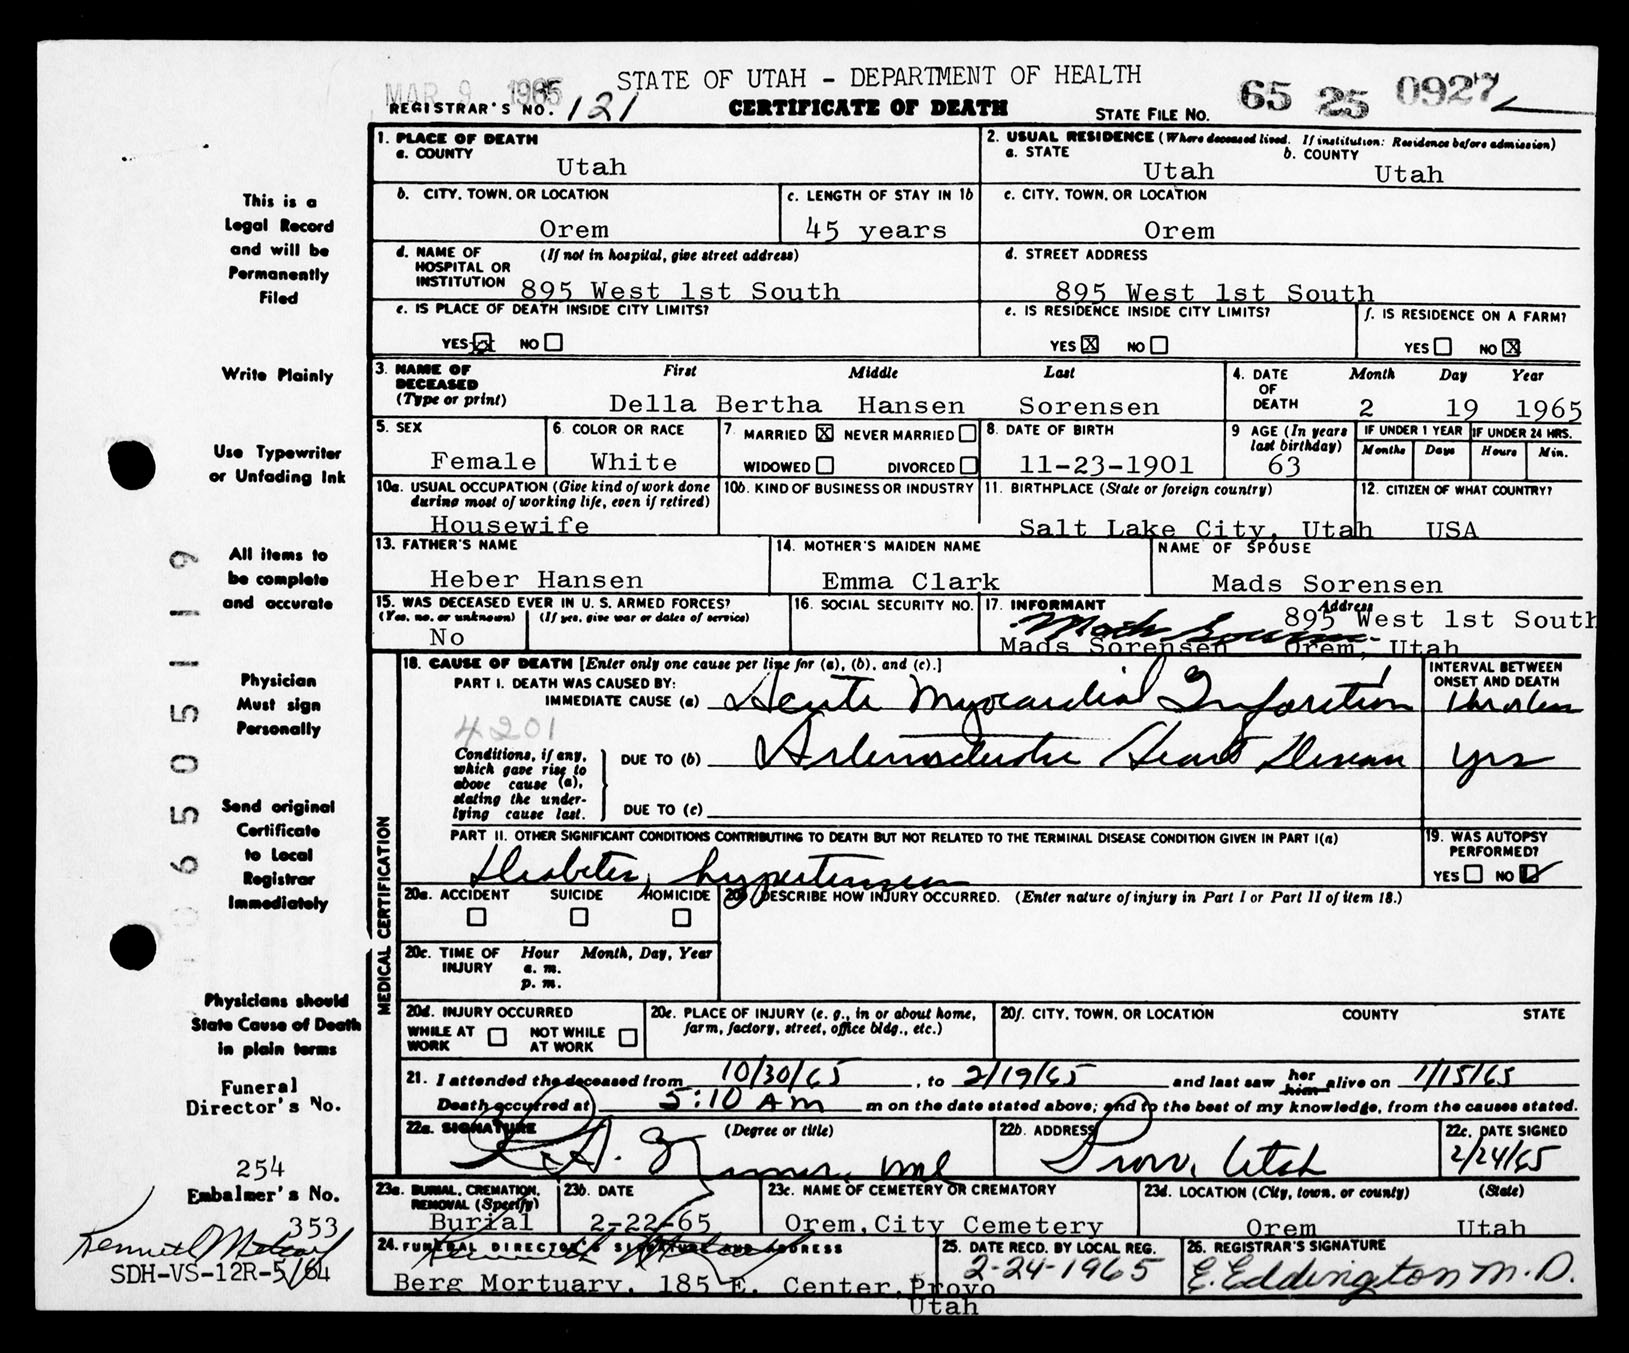 MAR 9 1965
STATE OF UTAH - DEPARTMENT OF HEALTH
65 25 0927
REGISTRAR'S NO. 121
CERTIFICATE OF DEATH
STATE FILE NO.
1. PLACE OF DEATH
a. COUNTY
Utah
2. USUAL RESIDENCE (Where deceased lived. If institution: Residence before admission)
a. STATE
Utah
b. COUNTY
Utah
b. CITY, TOWN, OR LOCATION
Orem
c. LENGTH OF STAY IN 1b
45 years
c. CITY, TOWN, OR LOCATION
Orem
d. NAME OF HOSPITAL OR INSTITUTION
(If not in hospital, give street address)
895 West 1st South
d. STREET ADDRESS
895 West 1st South
e. IS PLACE OF DEATH INSIDE CITY LIMITS?
YES X NO
e. IS RESIDENCE INSIDE CITY LIMITS?
YES X NO
f. IS RESIDENCE ON A FARM?
YES NO X
3. NAME OF DECEASED (Type or print)
First Middle Last
Della Bertha Hansen Sorensen
4. DATE OF DEATH
Month Day Year
2 19 1965
5. SEX
Female
6. COLOR OR RACE
White
7. MARRIED X NEVER MARRIED
WIDOWED DIVORCED
8. DATE OF BIRTH
11-23-1901
9 AGE (In years last birthday)
63
IF UNDER 1 YEAR
Months Days
IF UNDER 24 HRS.
Hours Min.
10a. USUAL OCCUPATION (Give kind of work done during most of working life, even if retired)
Housewife
10b. KIND OF BUSINESS OR INDUSTRY
11. BIRTHPLACE (State or foreign country)
Salt Lake City, Utah
12. CITIZEN OF WHAT COUNTRY?
USA
13. FATHER'S NAME
Heber Hansen
14. MOTHER'S MAIDEN NAME
Emma Clark
NAME OF SPOUSE
Mads Sorensen
15. WAS DECEASED EVER IN U. S. ARMED FORCES?
(Yes, no, or unknown) (If yes, give war or dates of service)
No
16. SOCIAL SECURITY NO.
17. INFORMANT
Address
895 West 1st South
Mads Sorensen
Mads Sorensen Orem, Utah
MEDICAL CERTIFICATION
18. CAUSE OF DEATH [Enter only one cause per line for (a), (b), and (c).]
PART I. DEATH WAS CAUSED BY:
IMMEDIATE CAUSE (a) Acute Myocardial Infarction
INTERVAL BETWEEN ONSET AND DEATH
4201
Conditions, if any, which gave rise to above cause (a), stating the underlying cause last.
DUE TO (b) Arteriosclerotic Heart Disease
yrs
DUE TO (c)
PART II. OTHER SIGNIFICANT CONDITIONS CONTRIBUTING TO DEATH BUT NOT RELATED TO THE TERMINAL DISEASE CONDITION GIVEN IN PART I(a)
Diabetes, hypertension
19. WAS AUTOPSY PERFORMED?
YES NO ✓
20a. ACCIDENT SUICIDE HOMICIDE
20b. DESCRIBE HOW INJURY OCCURRED. (Enter nature of injury in Part I or Part II of item 18.)
20c. TIME OF INJURY
Hour Month, Day, Year
a. m.
p. m.
20d. INJURY OCCURRED
WHILE AT WORK NOT WHILE AT WORK
20e. PLACE OF INJURY (e. g., in or about home, farm, factory, street, office bldg., etc.)
20f. CITY, TOWN, OR LOCATION COUNTY STATE
21. I attended the deceased from 10/30/65, to 2/19/65 and last saw her him alive on 1/15/65
Death occurred at 5:10 AM m on the date stated above; and to the best of my knowledge, from the causes stated.
22a. SIGNATURE (Degree or title)
MD
22b. ADDRESS
Provo, Utah
22c. DATE SIGNED
2/24/65
23a. BURIAL, CREMATION, REMOVAL (Specify)
Burial
23b. DATE
2-22-65
23c. NAME OF CEMETERY OR CREMATORY
Orem, City Cemetery
23d. LOCATION (City, town, or county) (State)
Orem Utah
24. FUNERAL DIRECTOR'S SIGNATURE AND ADDRESS
Berg Mortuary, 185 E. Center, Provo
Utah
25. DATE RECD. BY LOCAL REG.
2-24-1965
26. REGISTRAR'S SIGNATURE
E. Eddington M.D.
This is a
Legal Record
and will be
Permanently
Filed
Write Plainly
Use Typewriter
or Unfading Ink
All items to
be complete
and accurate
Physician
Must sign
Personally
Send original
Certificate
to Local
Registrar
Immediately
Physicians should
State Cause of Death
in plain terms
Funeral
Director's No.
254
Embalmer's No.
353
SDH-VS-12R-5/64
6505119